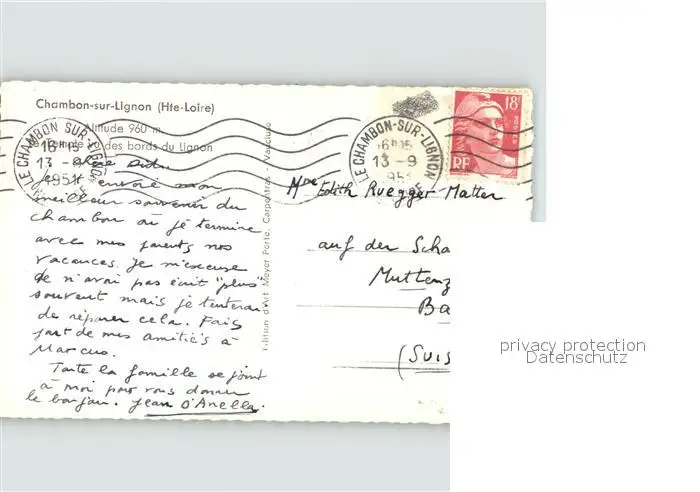 Chambon-sur-Lignon (Hte-Loire)
Altitude 960 m.
Temple vu des bords du Lignon
LE CHAMBON-SUR-LIGNON
16H15
13-9
1951
LE CHAMBON-SUR-LIGNON
13-9
18F
POSTES
RF
envoie mon
meilleur souvenir du
Chambon où je termine
avec mes parents nos
vacances. Je m'excuse
de n'avoir pas écrit "plus"
souvent mais je tenterai
de réparer cela. Fais
part de mes amitiés à
Marcus.
Toute la famille se joint
à moi pour vous donner
le bonjour. Jean D'Anella.
Edition d'Art Meyer Porte, Carpentras - Vaucluse
Mme Edith Ruegger-Matter
auf der Scha
Muttenz
Ba
(Suis
privacy protection
Datenschutz